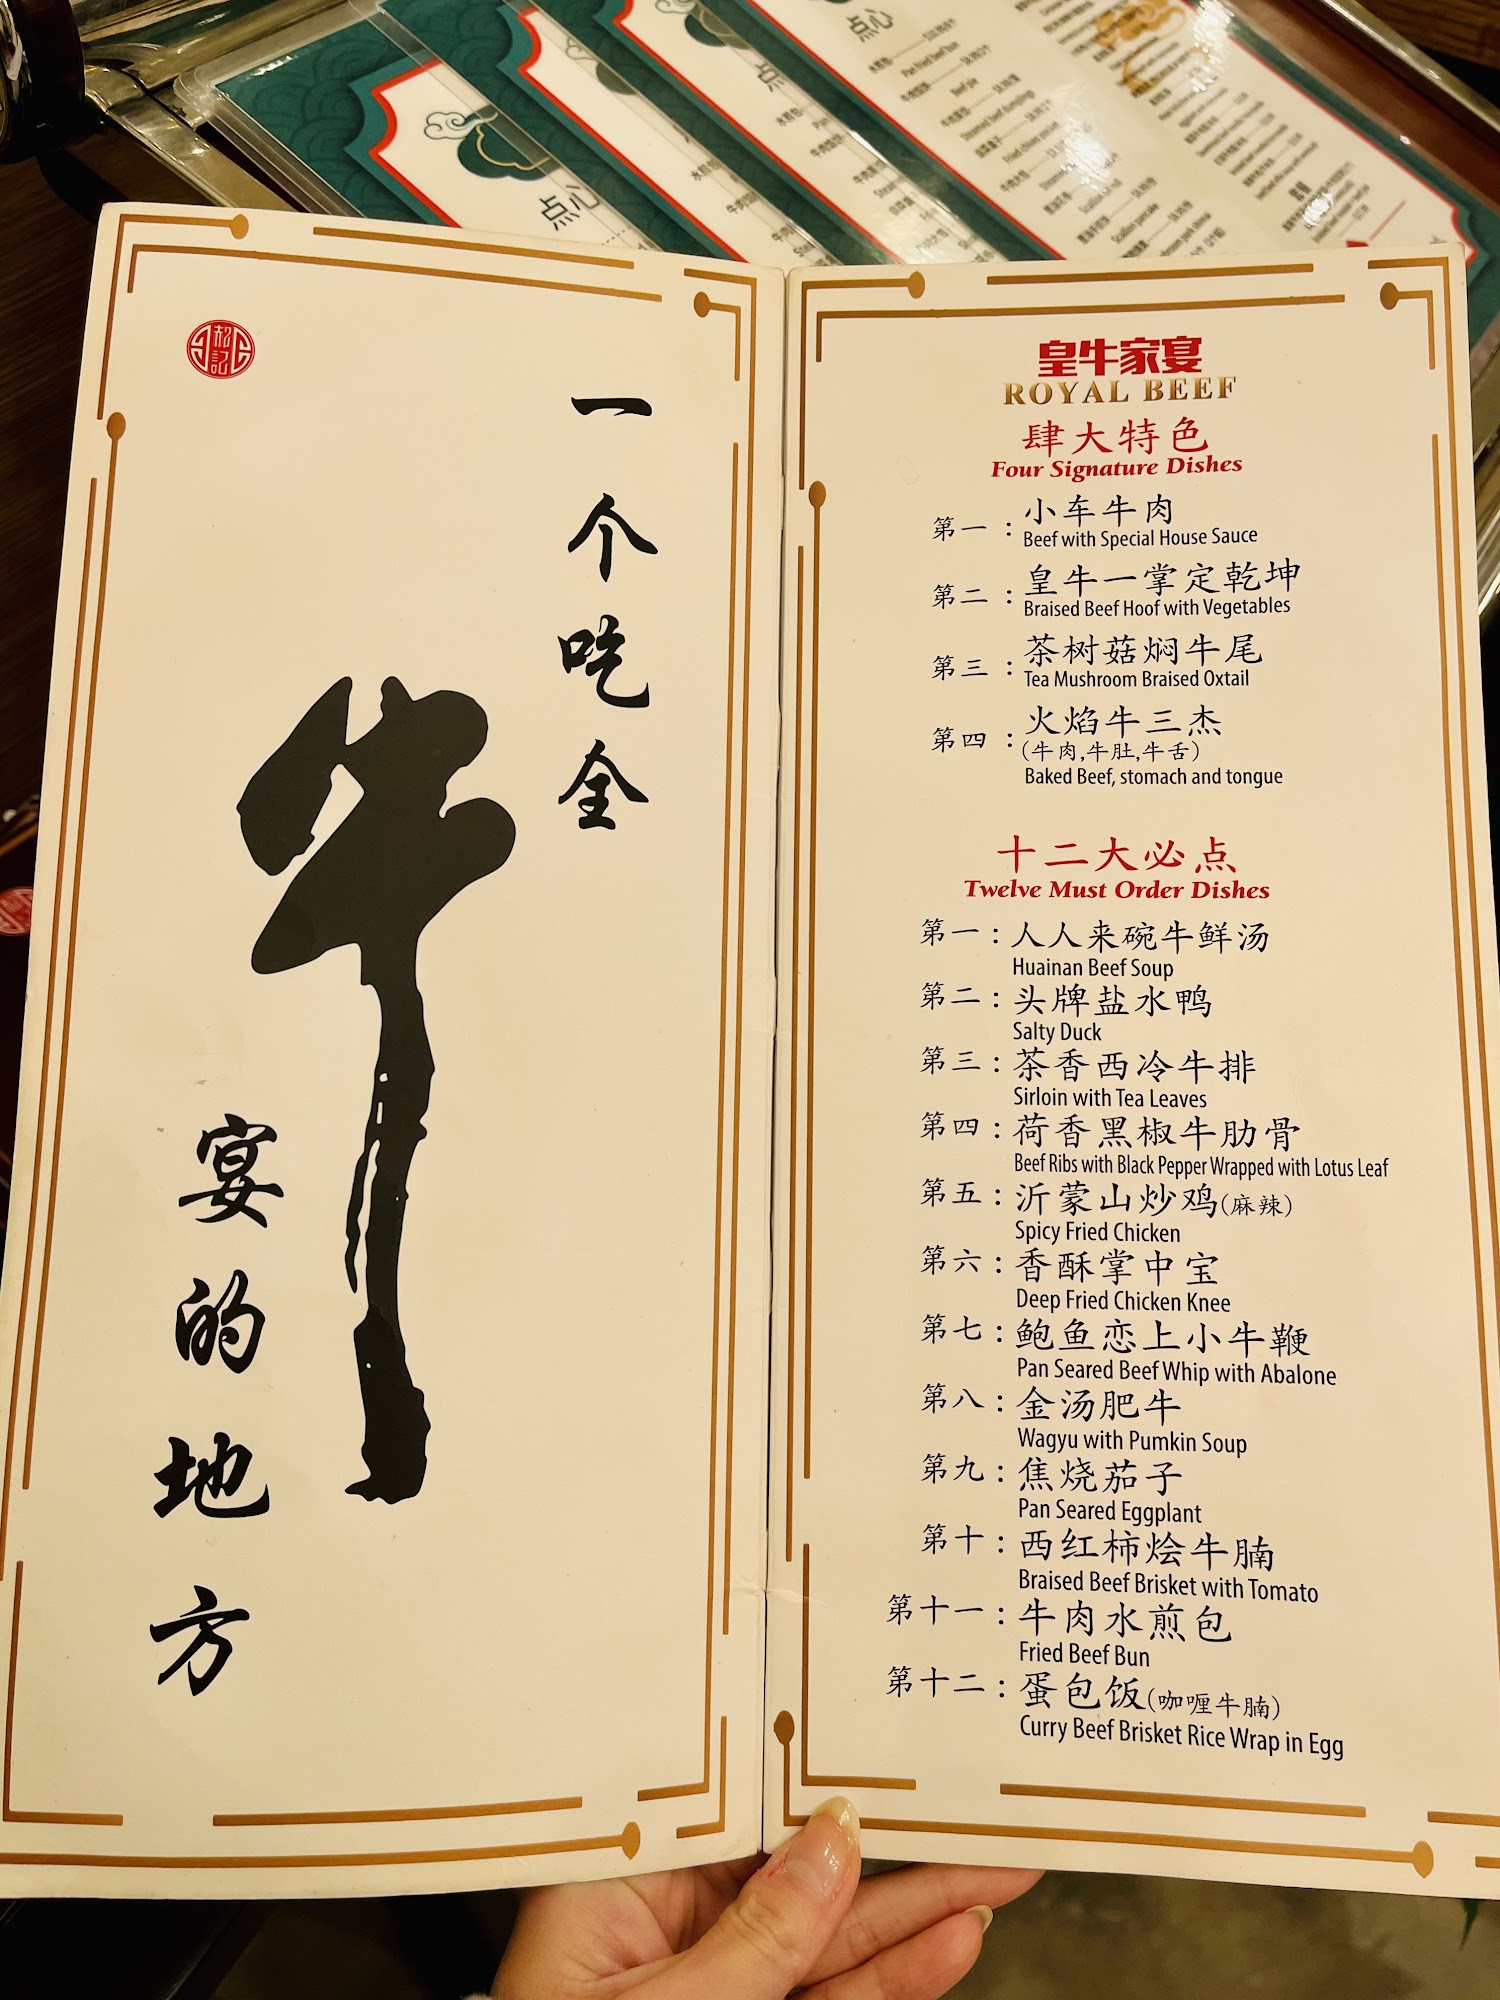 郝記
一个吃全
牛
宴的地方
皇牛家宴
ROYAL BEEF
肆大特色
Four Signature Dishes
第一：小车牛肉
Beef with Special House Sauce
第二：皇牛一掌定乾坤
Braised Beef Hoof with Vegetables
第三：茶树菇焖牛尾
Tea Mushroom Braised Oxtail
第四：火焰牛三杰
(牛肉,牛肚,牛舌)
Baked Beef, stomach and tongue
十二大必点
Twelve Must Order Dishes
第一：人人来碗牛鲜汤
Huainan Beef Soup
第二：头牌盐水鸭
Salty Duck
第三：茶香西冷牛排
Sirloin with Tea Leaves
第四：荷香黑椒牛肋骨
Beef Ribs with Black Pepper Wrapped with Lotus Leaf
第五：沂蒙山炒鸡(麻辣)
Spicy Fried Chicken
第六：香酥掌中宝
Deep Fried Chicken Knee
第七：鲍鱼恋上小牛鞭
Pan Seared Beef Whip with Abalone
第八：金汤肥牛
Wagyu with Pumkin Soup
第九：焦烧茄子
Pan Seared Eggplant
第十：西红柿烩牛腩
Braised Beef Brisket with Tomato
第十一：牛肉水煎包
Fried Beef Bun
第十二：蛋包饭(咖喱牛腩)
Curry Beef Brisket Rice Wrap in Egg
点心
点心
点心